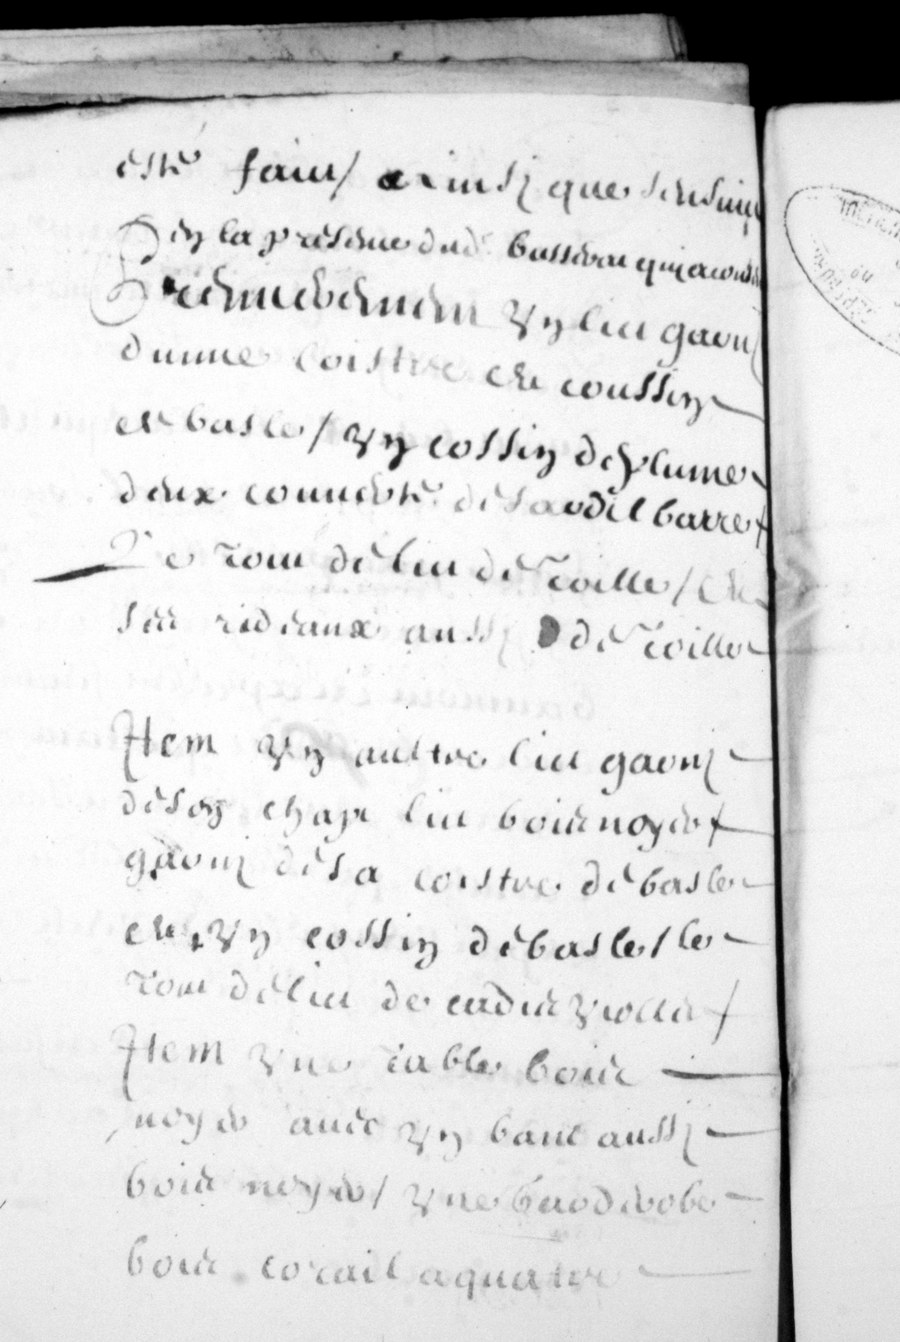 este faict ainsy que sensuit
En la presence dud.
Premierement Ung lict garny
dunne coistre et coussin
et basle / ung cossin de plume
deux couverte de
Le tour de lict de toille / et
ses rideaux aussy de toille
Item ung aultre lict garny
de son chap lict bois noyer
garny de sa coistre de basle
et ung cossin de basle / le
tour de lict de cadis viollet
Item une table bois
noyer avec ung banc aussy
bois noyer / une garderobe
bois corail a quatre